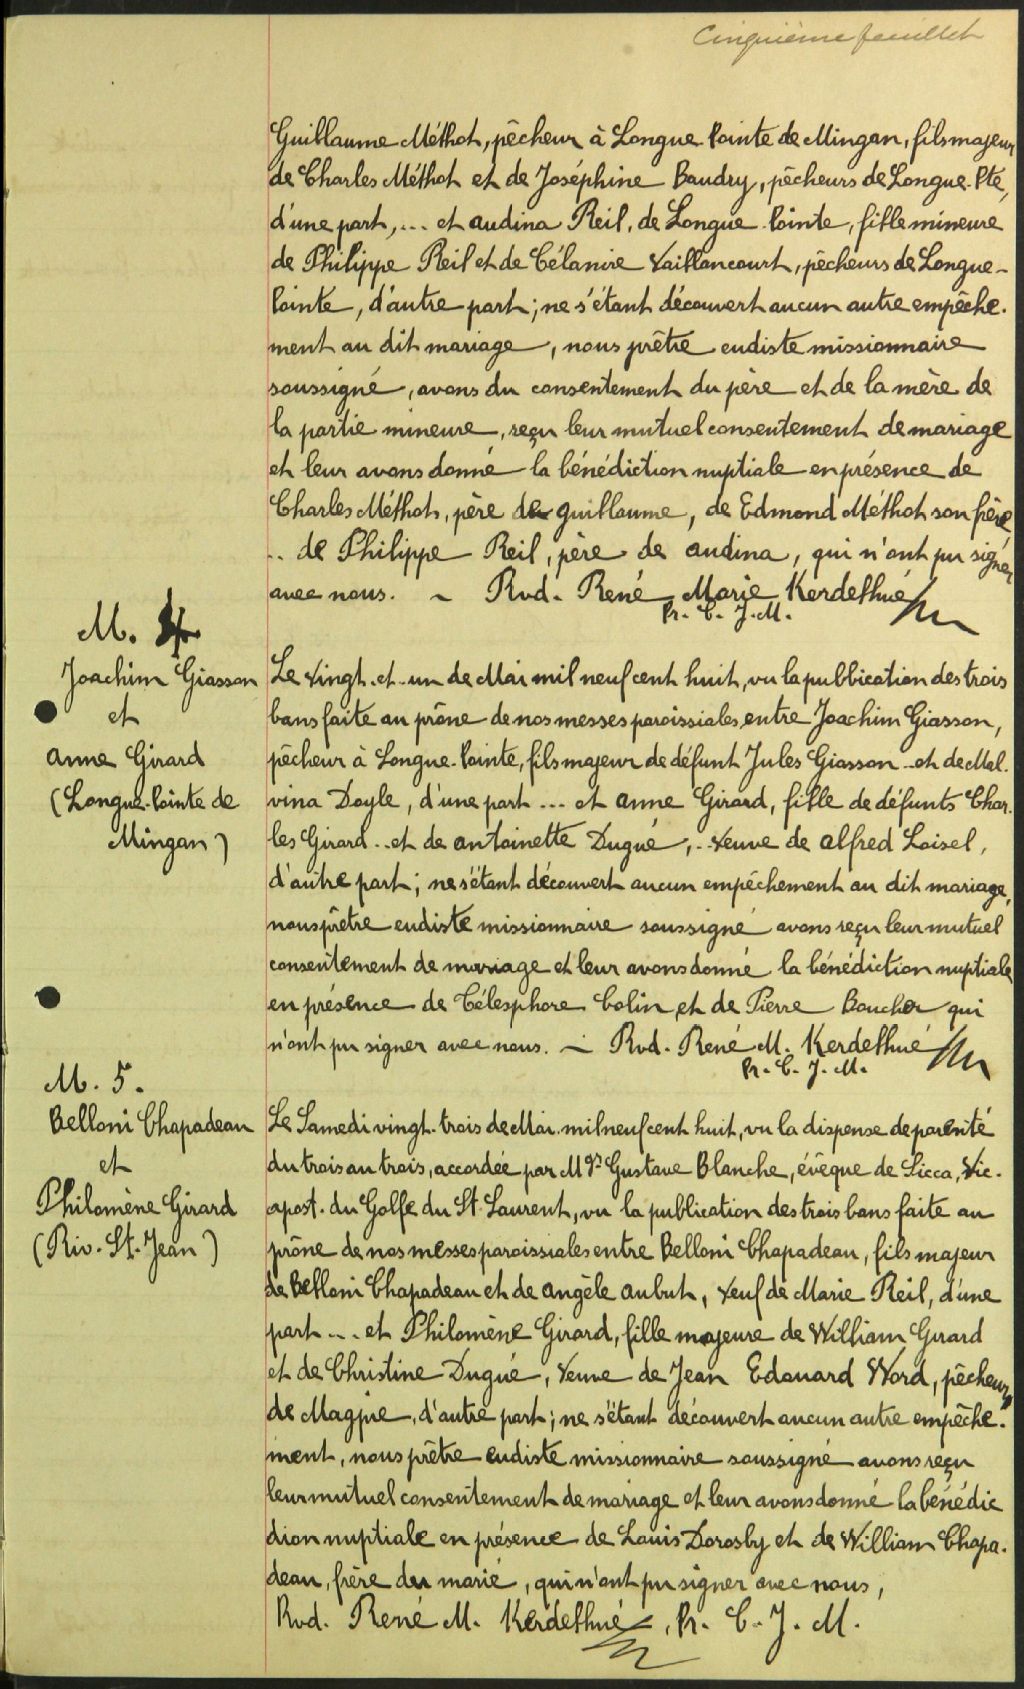 Cinquième feuillet
Guillaume Méthot, pêcheur à Longue Pointe de Mingan, fils majeur
de Charles Méthot et de Joséphine Baudry, pêcheurs de Longue-Pte,
d'une part, ... et Audina Reil, de Longue-Pointe, fille mineure
de Philippe Reil et de Célanire Vaillancourt, pêcheurs de Longue-
Pointe, d'autre part; ne s'étant découvert aucun autre empêche-
ment au dit mariage, nous prêtre eudiste missionnaire
soussigné, avons du consentement du père et de la mère de
la partie mineure, reçu leur mutuel consentement de mariage
et leur avons donné la bénédiction nuptiale en présence de
Charles Méthot, père de Guillaume, de Edmond Méthot son frère
.. de Philippe Reil, père de Audina, qui n'ont pu signer
avec nous. ~ Rvd. René Marie Kerdelhué
Pr. C. J. M.
M. 4
Joachim Giasson
et
Anne Girard
(Longue-Pointe de
Mingan)
Le vingt-et-un de Mai mil neuf cent huit, vu la publication des trois
bans faite au prône de nos messes paroissiales entre Joachim Giasson,
pêcheur à Longue-Pointe, fils majeur de défunt Jules Giasson et de Mal-
vina Doyle, d'une part ... et Anne Girard, fille de défunts Char-
les Girard .. et de Antoinette Dugué, .. veuve de Alfred Loisel,
d'autre part; ne s'étant découvert aucun empêchement au dit mariage,
nous prêtre eudiste missionnaire soussigné avons reçu leur mutuel
consentement de mariage et leur avons donné la bénédiction nuptiale
en présence de Télesphore Colin et de Pierre Boucher qui
n'ont pu signer avec nous. ~ Rvd. René M. Kerdelhué
Pr. C. J. M.
M. 5.
Belloni Chapadeau
et
Philomène Girard
(Riv. St. Jean)
Le Samedi vingt-trois de Mai mil neuf cent huit, vu la dispense de parenté
du trois au trois, accordée par Mgr Gustave Blanche, évêque de Sicca, Vic.
apost. du Golfe du St Laurent, vu la publication des trois bans faite au
prône de nos messes paroissiales entre Belloni Chapadeau, fils majeur
de Belloni Chapadeau et de Angèle Aubut, veuf de Marie Reil, d'une
part ... et Philomène Girard, fille majeure de William Girard
et de Christine Dugué, veuve de Jean Edouard Word, pêcheurs
de Magpie, d'autre part; ne s'étant découvert aucun autre empêche-
ment, nous prêtre eudiste missionnaire soussigné avons reçu
leur mutuel consentement de mariage et leur avons donné la bénédic
dion nuptiale en présence de Louis Dorosby et de William Chapa-
deau, frère du marié, qui n'ont pu signer avec nous,
Rvd. René M. Kerdelhué, Pr. C. J. M.